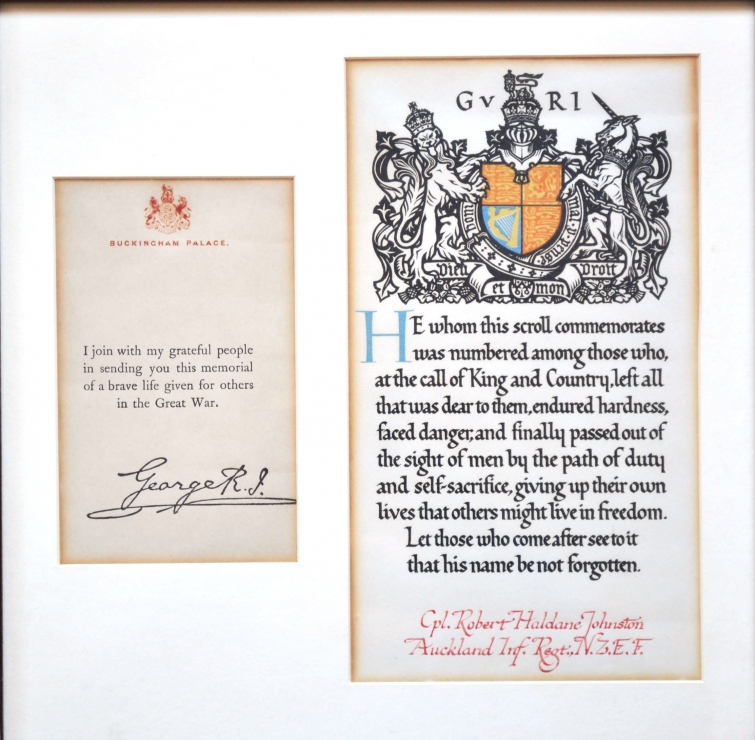 BUCKINGHAM PALACE.
I join with my grateful people
in sending you this memorial
of a brave life given for others
in the Great War.
George R.I.
G V R I
Honi soit qui mal y pense
Dieu et mon Droit
HE whom this scroll commemorates
was numbered among those who,
at the call of King and Country, left all
that was dear to them, endured hardness,
faced danger, and finally passed out of
the sight of men by the path of duty
and self-sacrifice, giving up their own
lives that others might live in freedom.
Let those who come after see to it
that his name be not forgotten.
Cpl. Robert Haldane Johnston
Auckland Inf. Regt., N.Z.E.F.